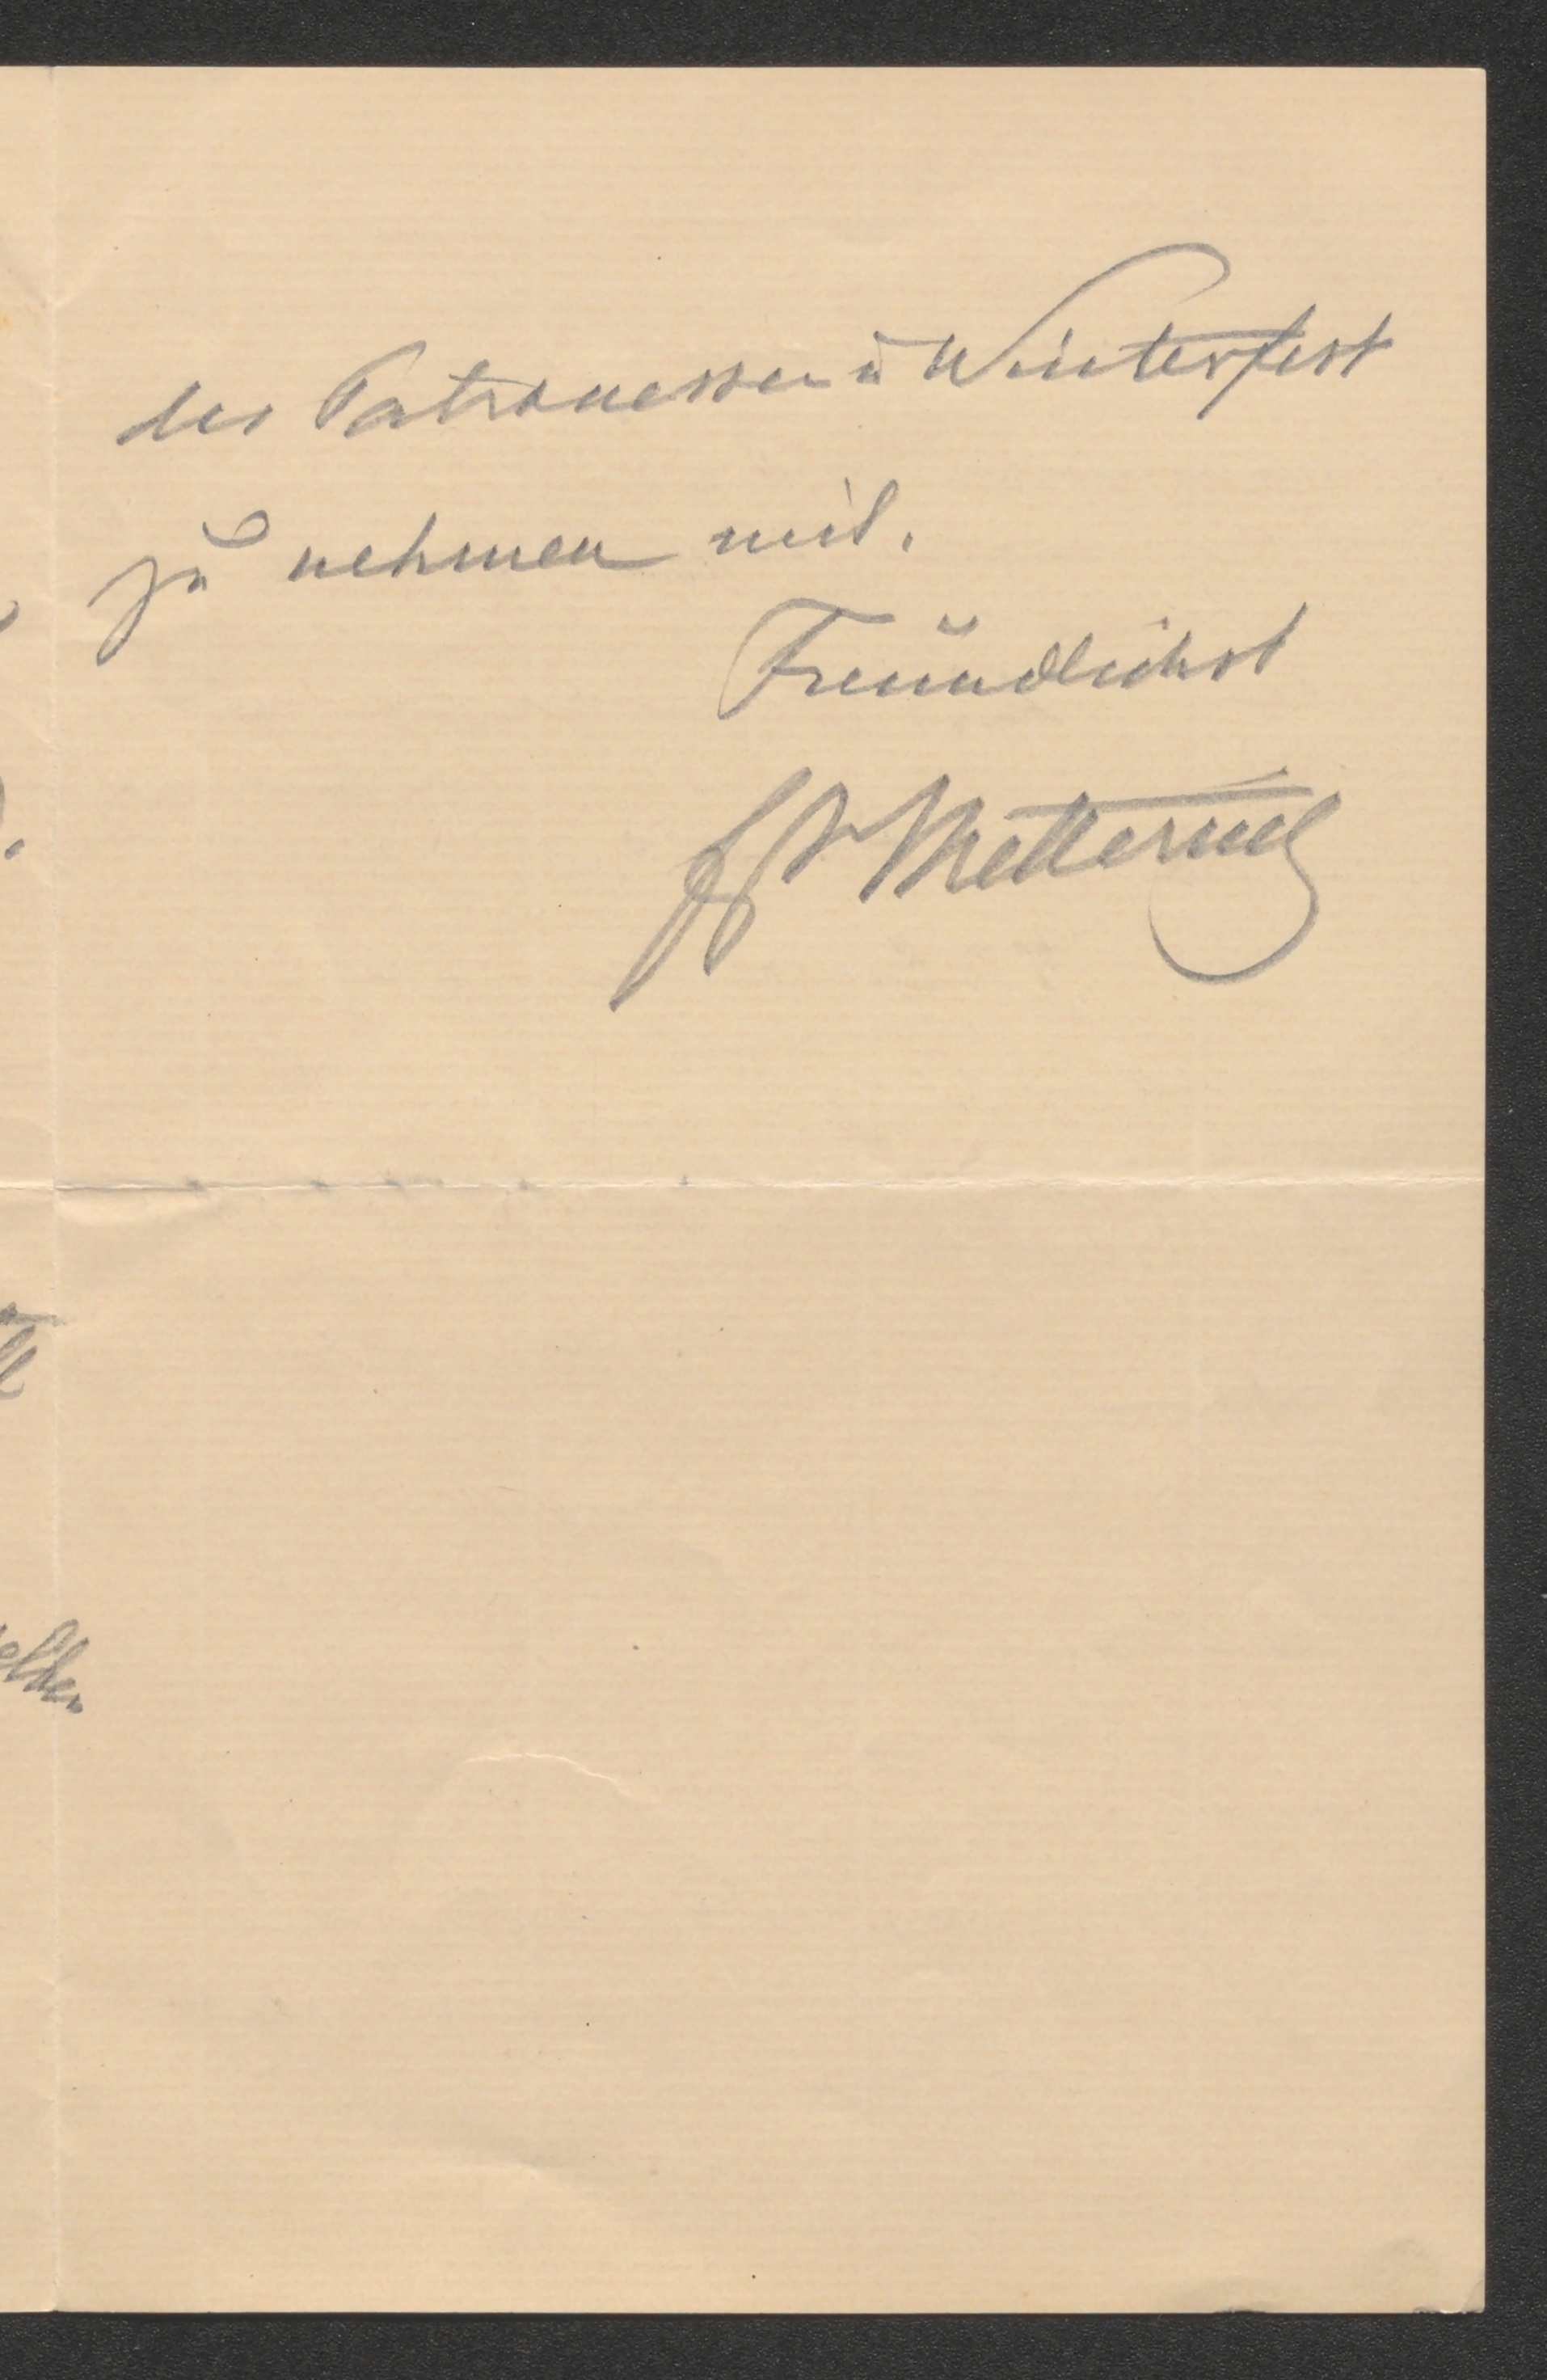 der Patronessen ū Winterfest
zu nehmen mit.
Freundlichst
Metternich